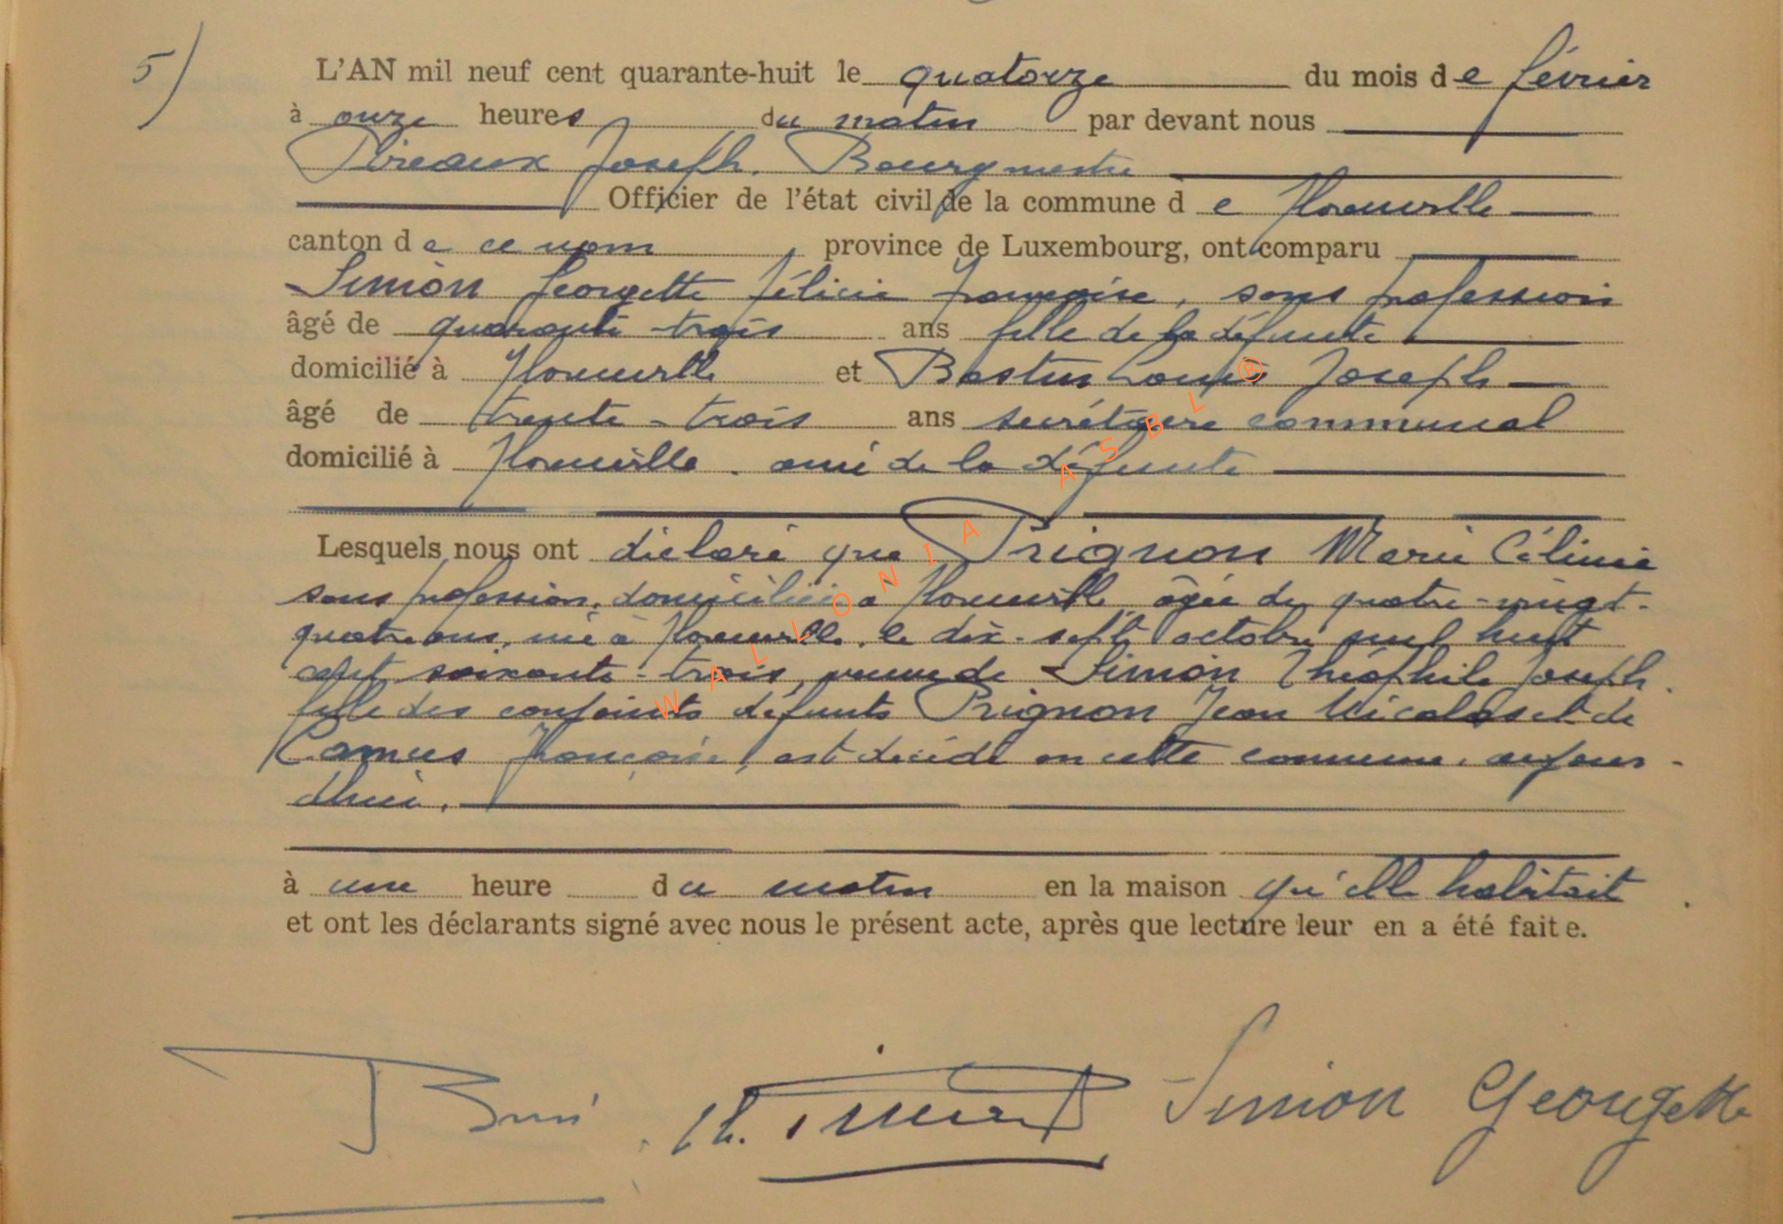 5)
L'AN mil neuf cent quarante-huit le quatorze du mois de février
à onze heures du matin par devant nous
Pireaux Joseph. Bourgmestre
Officier de l'état civil de la commune de Florenville
canton de ce nom, province de Luxembourg, ont comparu
Simon Georgette Félicie Françoise, sans profession
âgé de quarante-trois ans fille de la défunte
domicilié à Florenville et Bastin Louis Joseph
âgé de trente-trois ans secrétaire communal
domicilié à Florenville. ami de la défunte
Lesquels nous ont déclaré que Prignon Marie Céline
sans profession, domiciliée à Florenville âgée de quatre-vingt-
quatre ans, née à Florenville, le dix-sept octobre mil huit
cent soixante-trois, veuve de Simon Théophile Joseph.
fille des conjoints défunts Prignon Jean Nicolas et de
Camus Françoise, est décédé en cette commune, aujour-
d'hui.
à une heure du matin en la maison qu'elle habitait.
et ont les déclarants signé avec nous le présent acte, après que lecture leur en a été faite.
Simon Georgette
WALLONIA ASBL ®